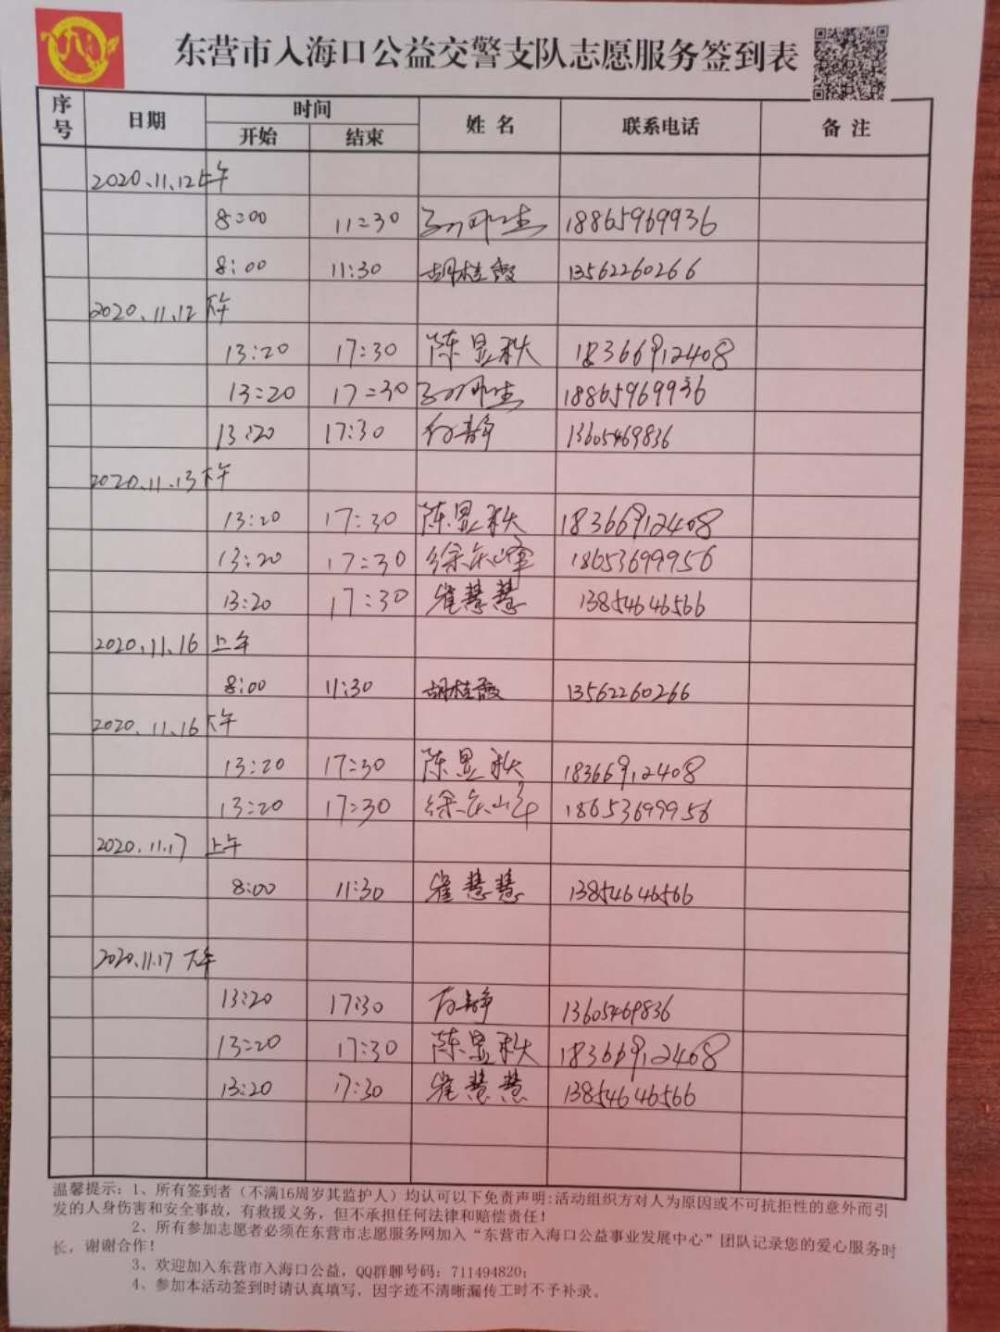 东营市入海口公益交警支队志愿服务签到表
序号 日期 时间 姓 名 联系电话 备 注
开始 结束
2020.11.12上午
8:00 11:30 18865969936
8:00 11:30 胡桂霞 13562260266
2020.11.12 下午
13:20 17:30 陈显秋 18366912408
13:20 17:30 18865969936
13:20 17:30 13605469836
2020.11.13下午
13:20 17:30 陈显秋 18366912408
13:20 17:30 徐东峰 18653699956
13:20 17:30 崔慧慧 13854646566
2020.11.16 上午
8:00 11:30 胡桂霞 13562260266
2020.11.16 下午
13:20 17:30 陈显秋 18366912408
13:20 17:30 徐东峰 18653699956
2020.11.17 上午
8:00 11:30 崔慧慧 13854646566
2020.11.17 下午
13:20 17:30 13605469836
13:20 17:30 陈显秋 18366912408
13:20 17:30 崔慧慧 13854646566
温馨提示:1、所有签到者(不满16周岁其监护人)均认可以下免责声明:活动组织方对人为原因或不可抗拒性的意外而引
发的人身伤害和安全事故,有救援义务,但不承担任何法律和赔偿责任!
2、所有参加志愿者必须在东营市志愿服务网加入“东营市入海口公益事业发展中心”团队记录您的爱心服务时
长,谢谢合作!
3、欢迎加入东营市入海口公益,QQ群聊号码:711494820;
4、参加本活动签到时请认真填写,因字迹不清晰漏传工时不予补录。